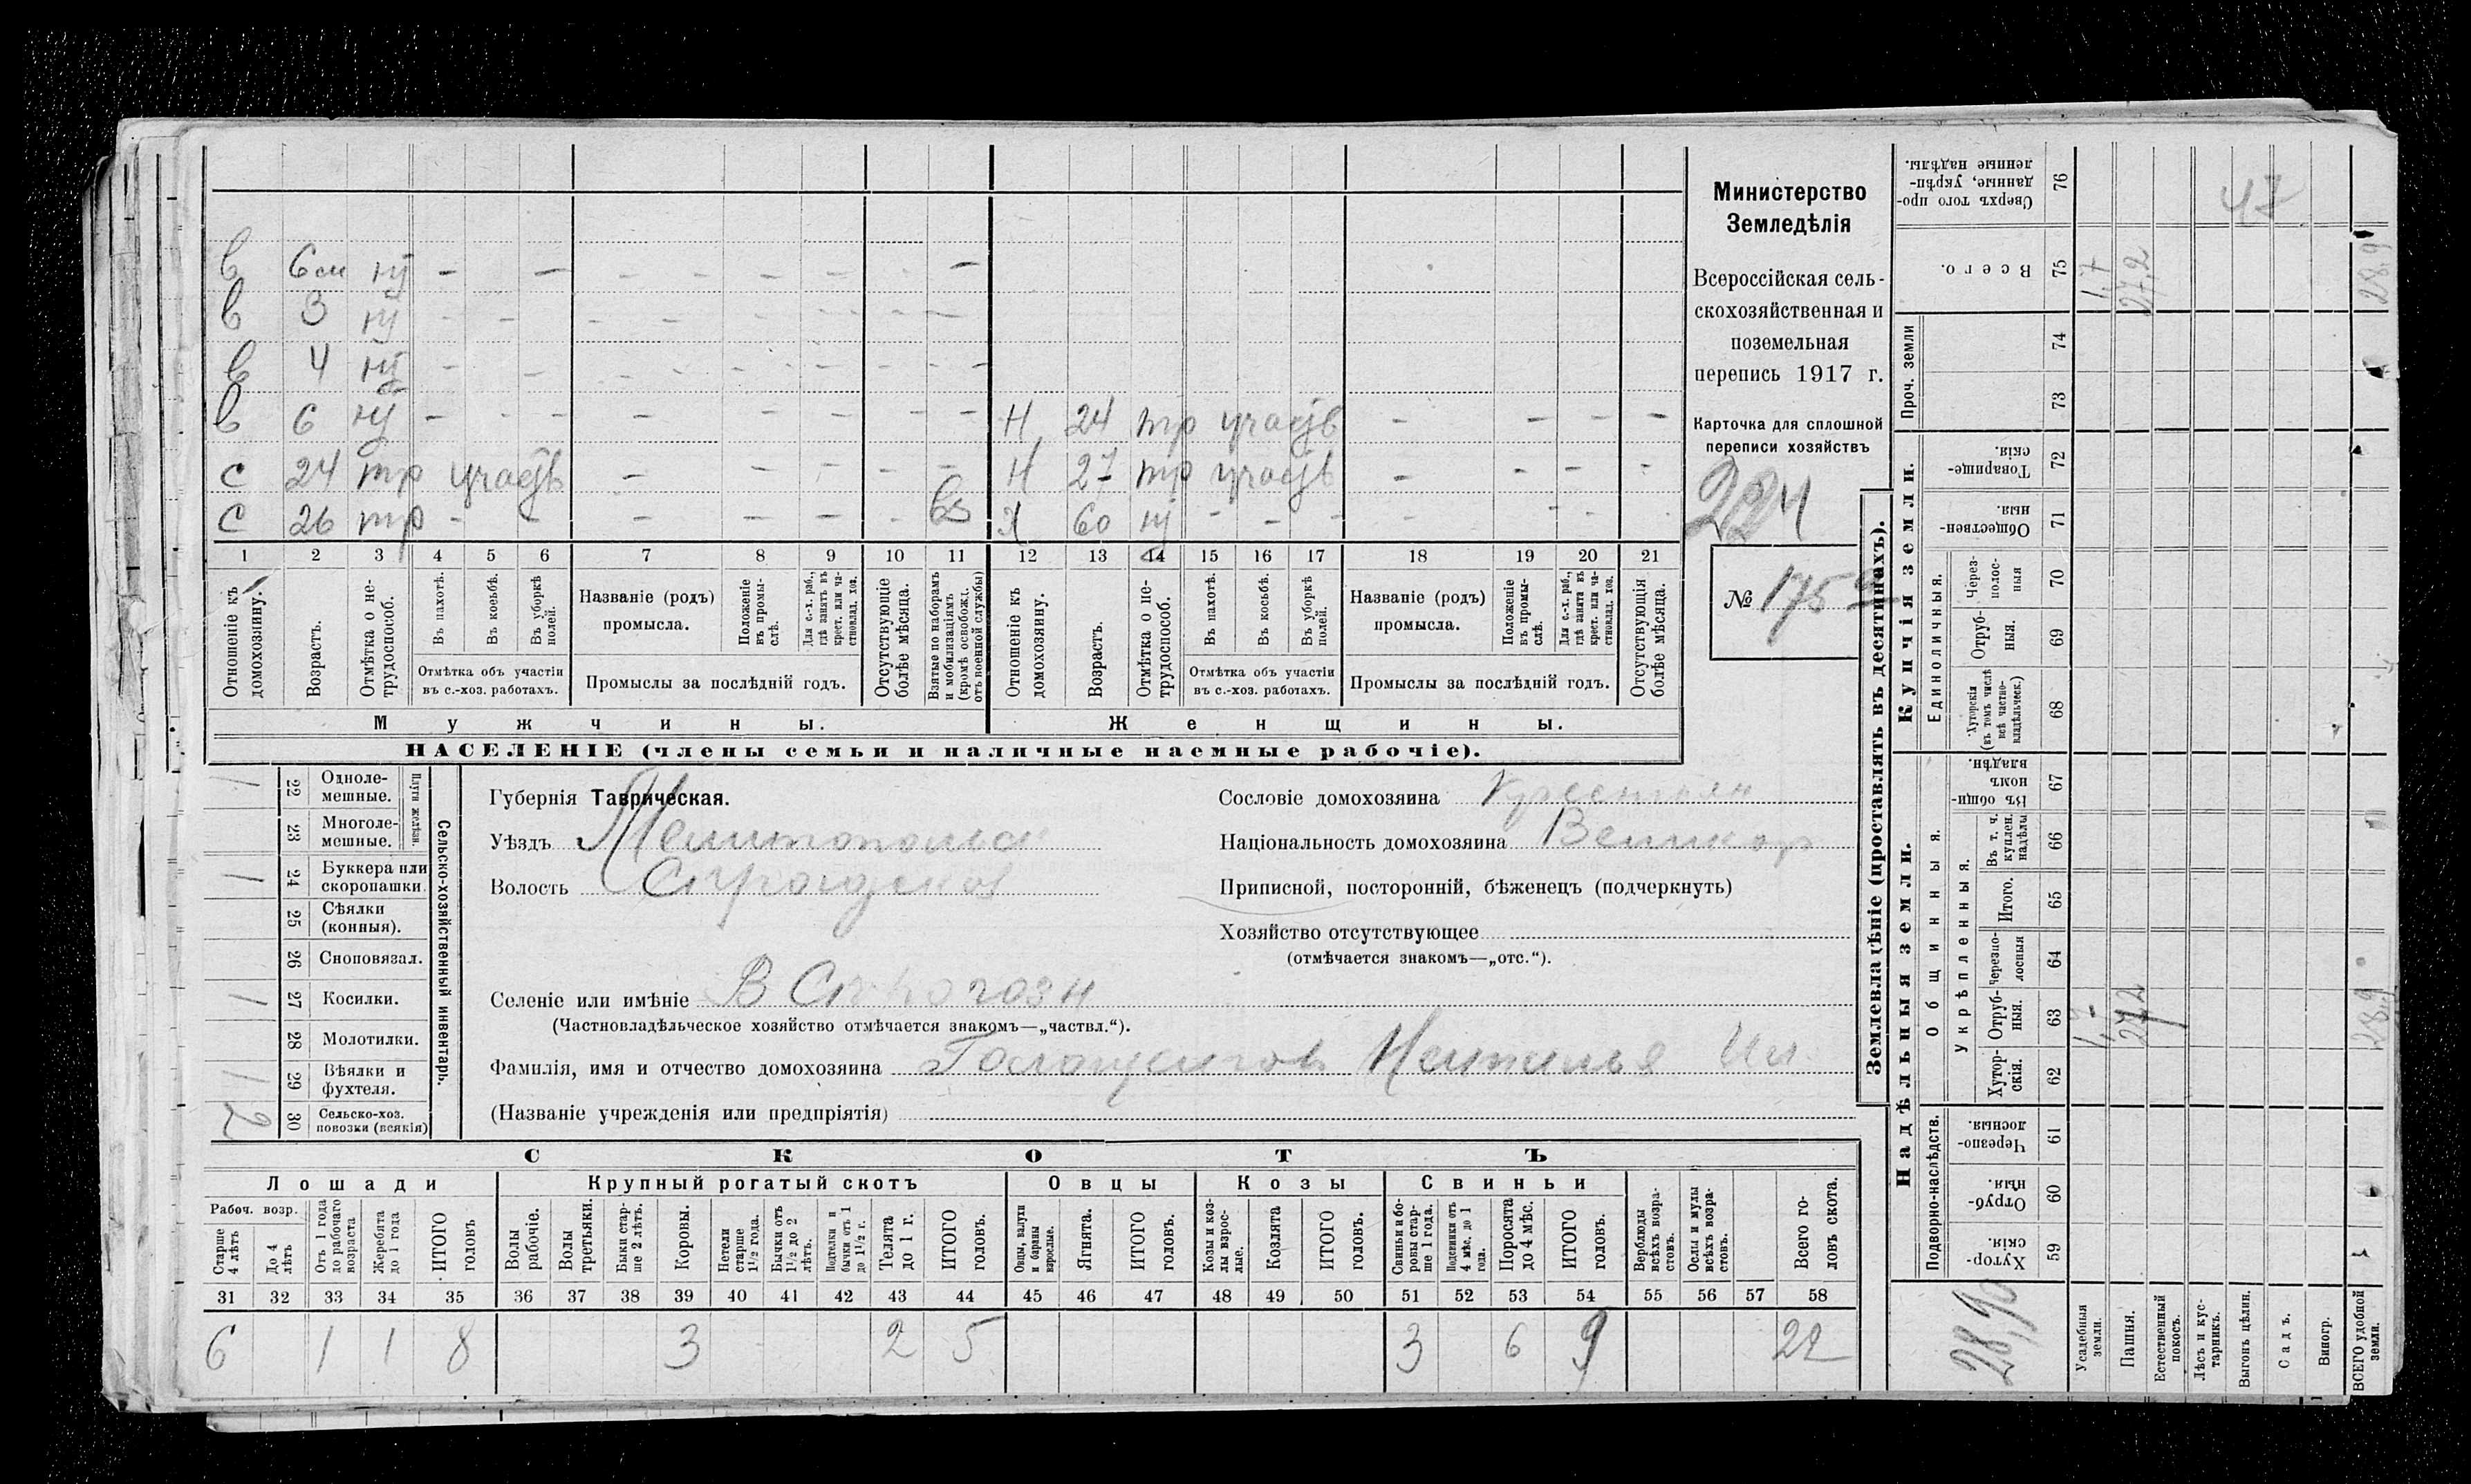 Министерство
Земледѣлія
Всероссійская сель-
скохозяйственная и
поземельная
перепись 1917 г.
Карточка для сплошной
переписи хозяйствъ
224
№ 175
в 6 м нт - - - - - - - -
в 3 нт - - - - - - - -
в 4 нт - - - - - - - -
в 6 нт - - - - - - - - Н 24 тр участв - - - -
с 24 тр участв - - - - - Н 27 тр участв - - - -
с 26 тр - - - - - вз Х 60 нт - - - - - - -
1 2 3 4 5 6 7 8 9 10 11 12 13 14 15 16 17 18 19 20 21
Отношеніе къ домохозяину.
Возрастъ.
Отмѣтка о не-трудоспособ.
Въ пахотѣ.
Въ косьбѣ.
Въ уборкѣ полей.
Отмѣтка объ участіи въ с.-хоз. работахъ.
Названіе (родъ) промысла.
Положеніе въ промы-слѣ.
Для с.-х. раб., гдѣ занятъ въ крест. или ча-стновлад. хоз.
Промыслы за послѣдній годъ.
Отсутствующіе болѣе мѣсяца.
Взятые по наборамъ и мобилизаціямъ (кромѣ освобожд. отъ военной службы)
Отношеніе къ домохозяину.
Возрастъ.
Отмѣтка о не-трудоспособ.
Въ пахотѣ.
Въ косьбѣ.
Въ уборкѣ полей.
Отмѣтка объ участіи въ с.-хоз. работахъ.
Названіе (родъ) промысла.
Положеніе въ промы-слѣ.
Для с.-х. раб., гдѣ занята въ крест. или ча-стновлад. хоз.
Промыслы за послѣдній годъ.
Отсутствующія болѣе мѣсяца.
Мужчины. Женщины.
НАСЕЛЕНІЕ (члены семьи и наличные наемные рабочіе).
Сельско-хозяйственный инвентарь.
Плуги желѣзн.
22 Одноле-мешные. 1
23 Многоле-мешные.
24 Буккера или скоропашки. 1
25 Сѣялки (конныя).
26 Сноповязал.
27 Косилки. 1
28 Молотилки.
29 Вѣялки и фухтеля. 1
30 Сельско-хоз. повозки (всякія) 2
Губернія Таврическая.
Уѣздъ Мелитопольск
Волость
Селеніе или имѣніе
(Частновладѣльческое хозяйство отмѣчается знакомъ—„частвл.“).
Фамилія, имя и отчество домохозяина
(Названіе учрежденія или предпріятія)
Сословіе домохозяина Крестьян
Національность домохозяина Великор
Приписной, посторонній, бѣженецъ (подчеркнуть)
Хозяйство отсутствующее
(отмѣчается знакомъ—„отс.“).
СКОТЪ
Лошади Крупный рогатый скотъ Овцы Козы Свиньи
Рабоч. возр.
Старше 4 лѣтъ
До 4 лѣтъ
Отъ 1 года до рабочаго возраста
Жеребята до 1 года
ИТОГО головъ
Волы рабочіе.
Волы третьяки.
Быки стар-ше 2 лѣтъ.
Коровы.
Нетели старше 1½ года.
Бычки отъ 1½ до 2 лѣтъ.
бычки отъ 1 до 1½ г.
Телята до 1 г.
ИТОГО головъ.
Овцы, валухи и бараны взрослые.
Ягнята.
ИТОГО головъ.
Козы и коз-лы взрос-лые.
Козлята
ИТОГО головъ.
Свиньи и бо-ровы стар-ше 1 года.
Подсвинки отъ 4 мѣс. до 1 года.
Поросята до 4 мѣс.
ИТОГО головъ.
Верблюды всѣхъ возра-стовъ.
Ослы и мулы всѣхъ возра-стовъ.
Всего го-ловъ скота.
31 32 33 34 35 36 37 38 39 40 41 42 43 44 45 46 47 48 49 50 51 52 53 54 55 56 57 58
6 1 1 8 3 2 5 3 6 9 22
Землевладѣніе (проставлять въ десятинахъ).
Надѣльныя земли. Купчія земли.
Подворно-наслѣдств.
Общинныя
Укрѣпленныя.
Единоличныя.
Проч. земли
59 Хутор-скія.
60 Отруб-ныя.
61 Черезпо-лосныя.
62 Хутор-скія.
63 Отруб-ныя.
64 Черезпо-лосныя
65 Итого.
66 Въ т. ч. куплен. надѣлы
67 Въ общи-номъ владѣн.
68 Хуторскія (въ томъ числѣ всѣ частно-владѣльческ.)
69 Отруб-ныя.
70 Через-полос-ныя
71 Обществен-ныя.
72 Товарище-скія.
73
74
75 Всего.
76 Сверхъ того про-данные, укрѣп-ленные надѣлы.
Усадебныя земли. 1,7 1,7
Пашня. 27,2 27,2
Естественный покосъ.
Лѣсъ и кус-тарникъ.
Выгонъ цѣлин.
Садъ.
Виногр.
ВСЕГО удобной земли. 28,9 28,9
28,90
47